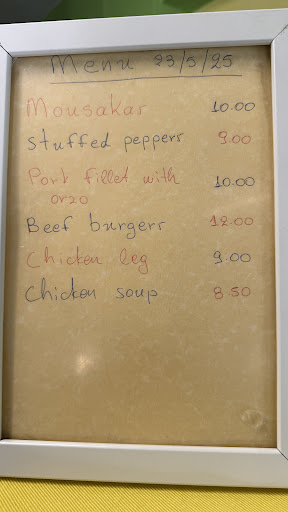 Menu 23/5/25
Mousakas 10.00
Stuffed peppers 9.00
Pork fillet with 10.00
orzo
Beef burgers 12.00
Chicken leg 9.00
Chicken soup 8.50